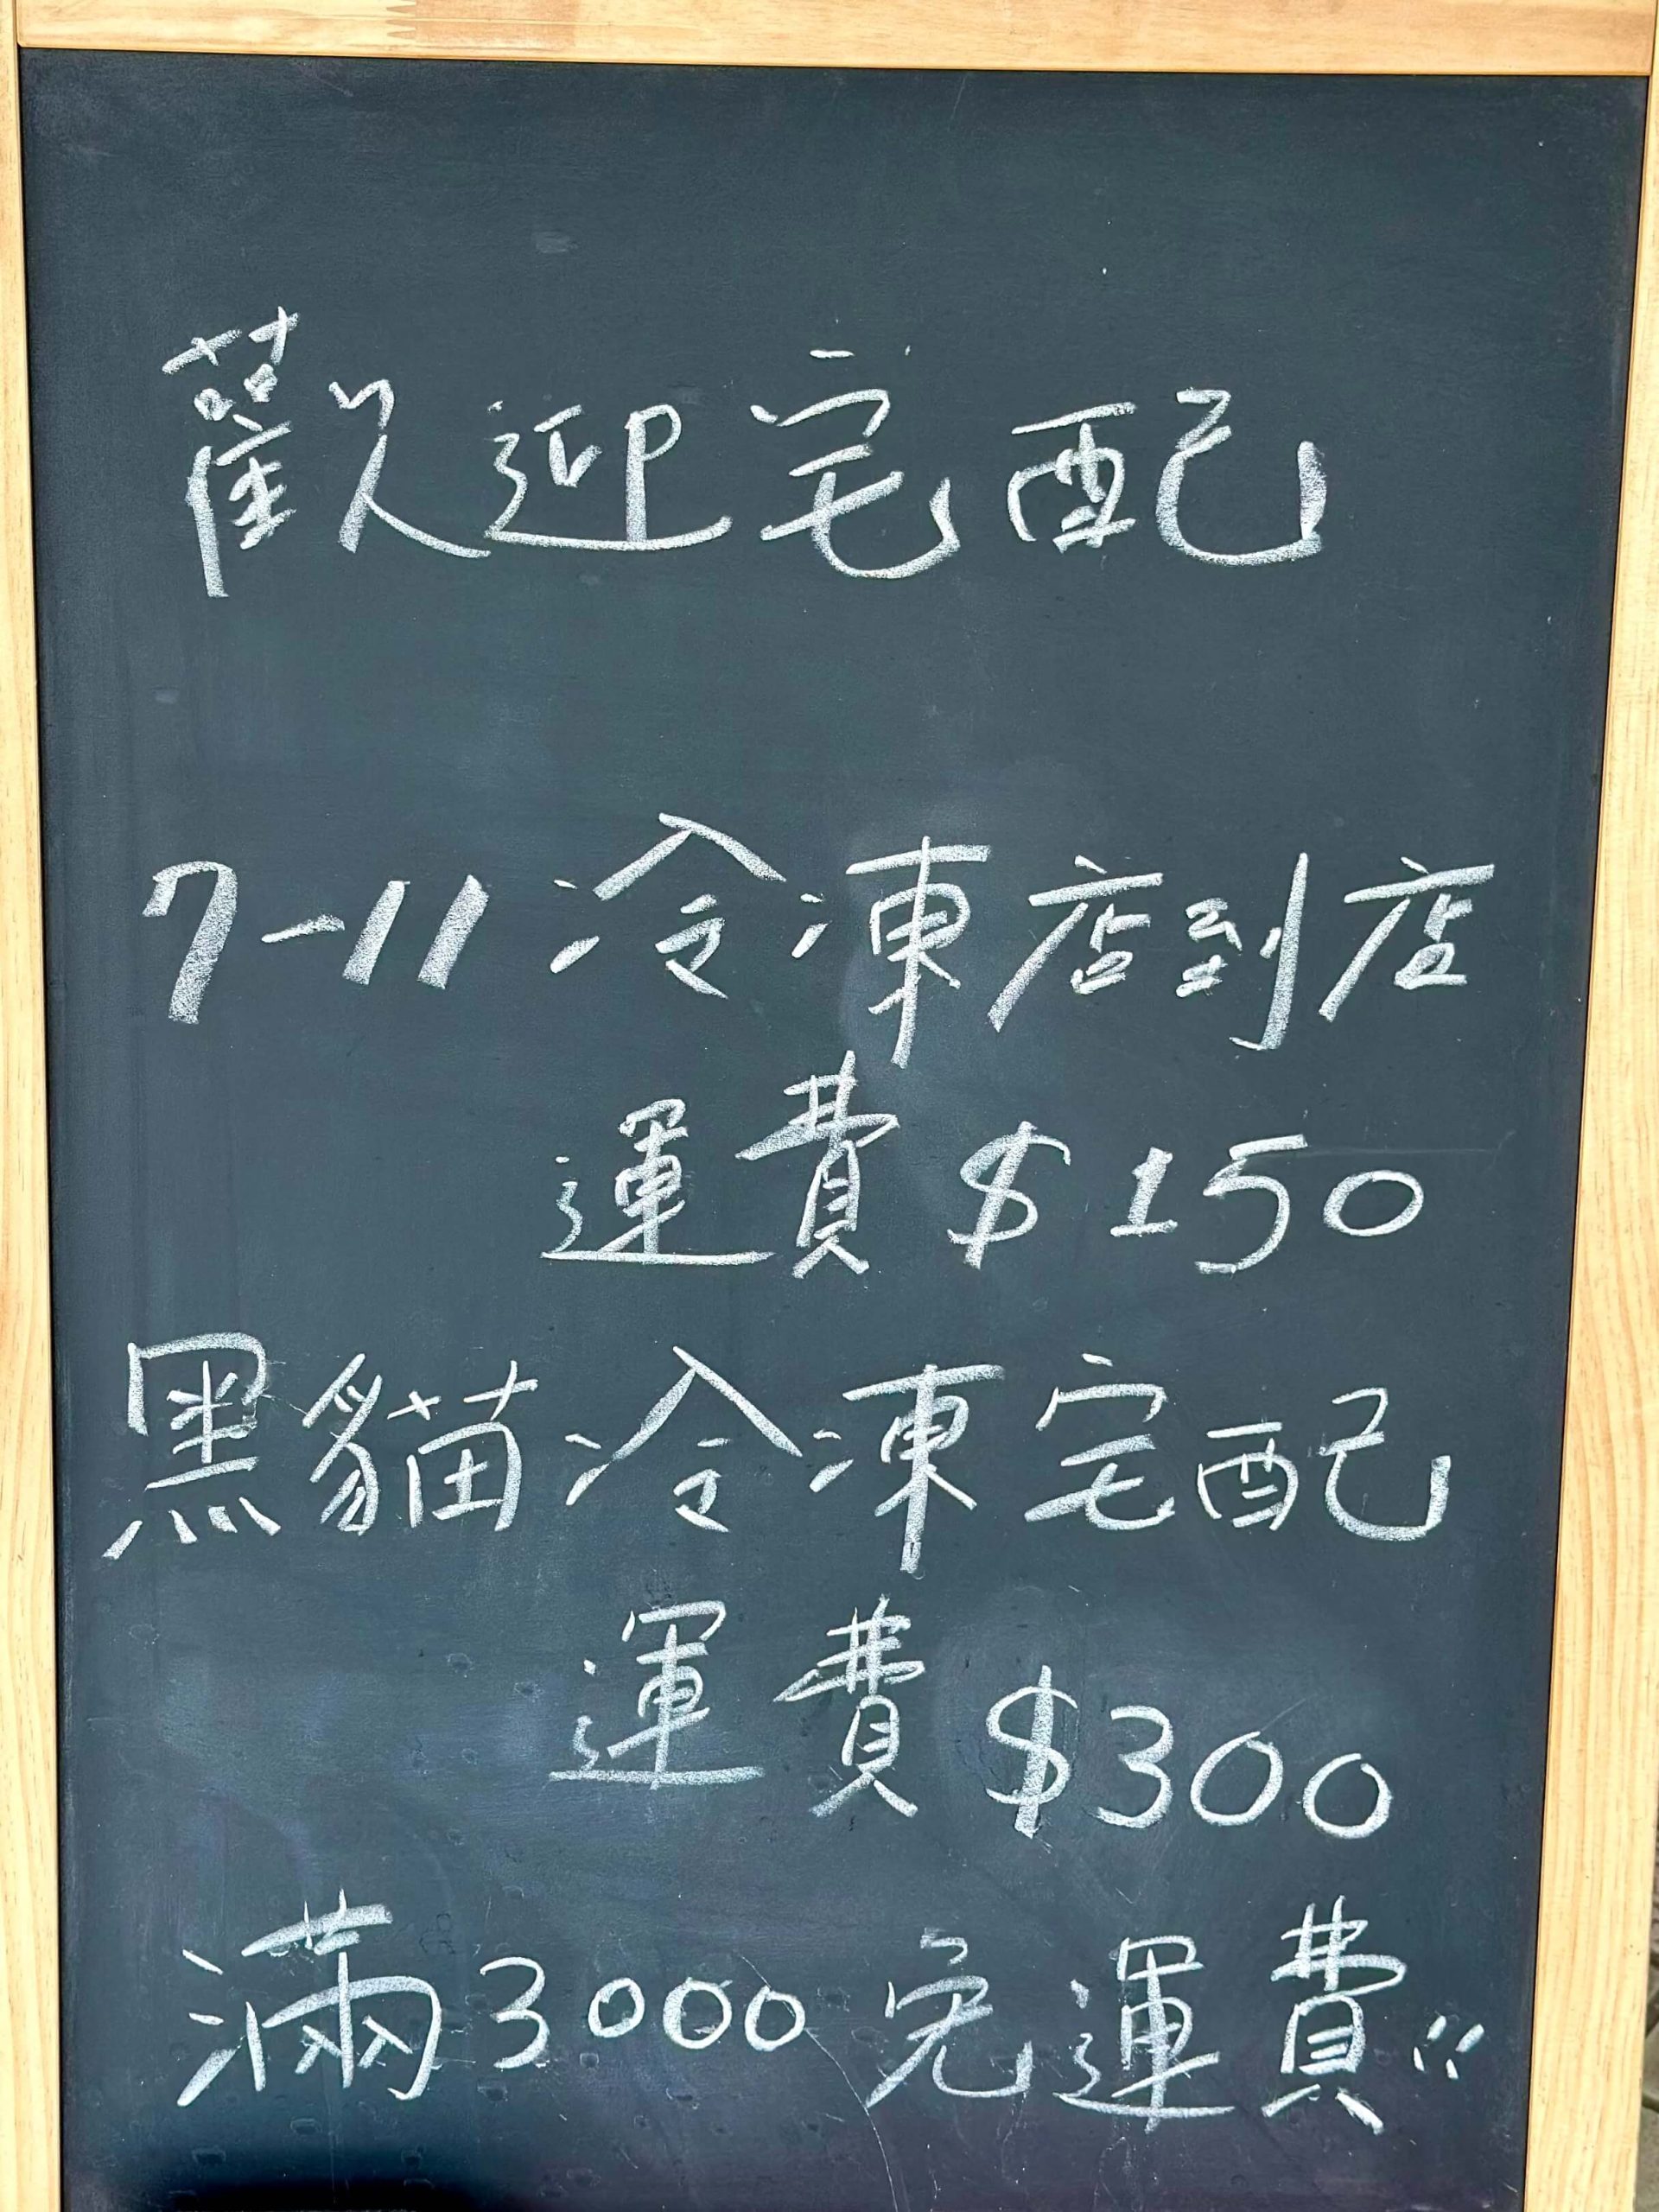 歡迎宅配
7-11冷凍店到店
運費$150
黑貓冷凍宅配
運費$300
滿3000免運費!!